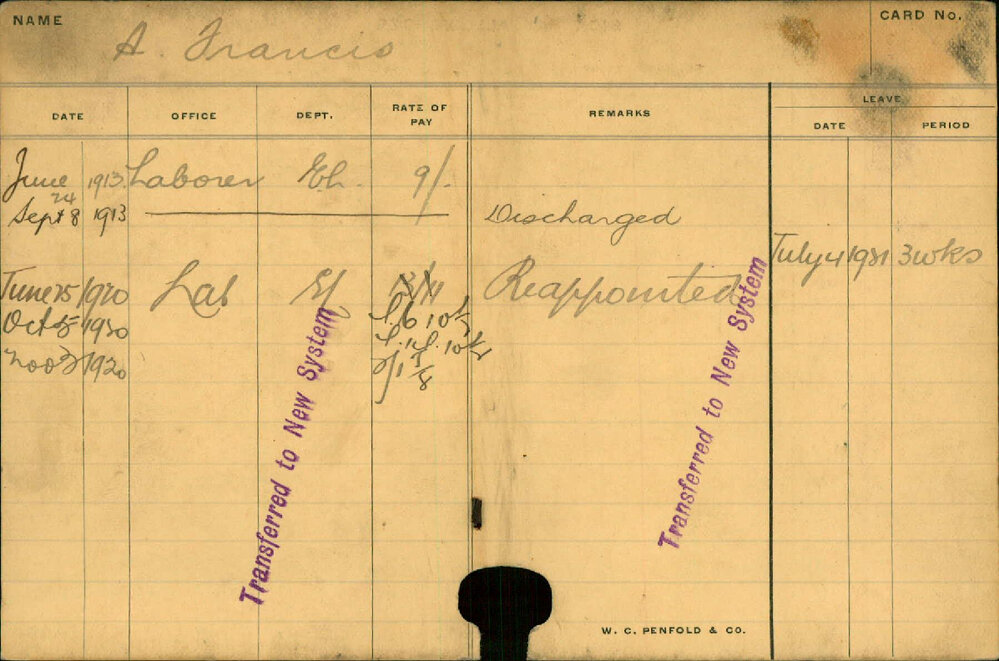 NAME A. Francis CARD No.
DATE OFFICE DEPT. RATE OF PAY REMARKS LEAVE
DATE PERIOD
June 24 1913 Laborer Eh. 9/-
Sept 8 1913 Discharged
July 4 1921 3 wks
June 25 1920 Lab El Reappointed
Oct 5 1920 10½
Nov 1920
Transferred to New System
Transferred to New System
W. C. PENFOLD & CO.